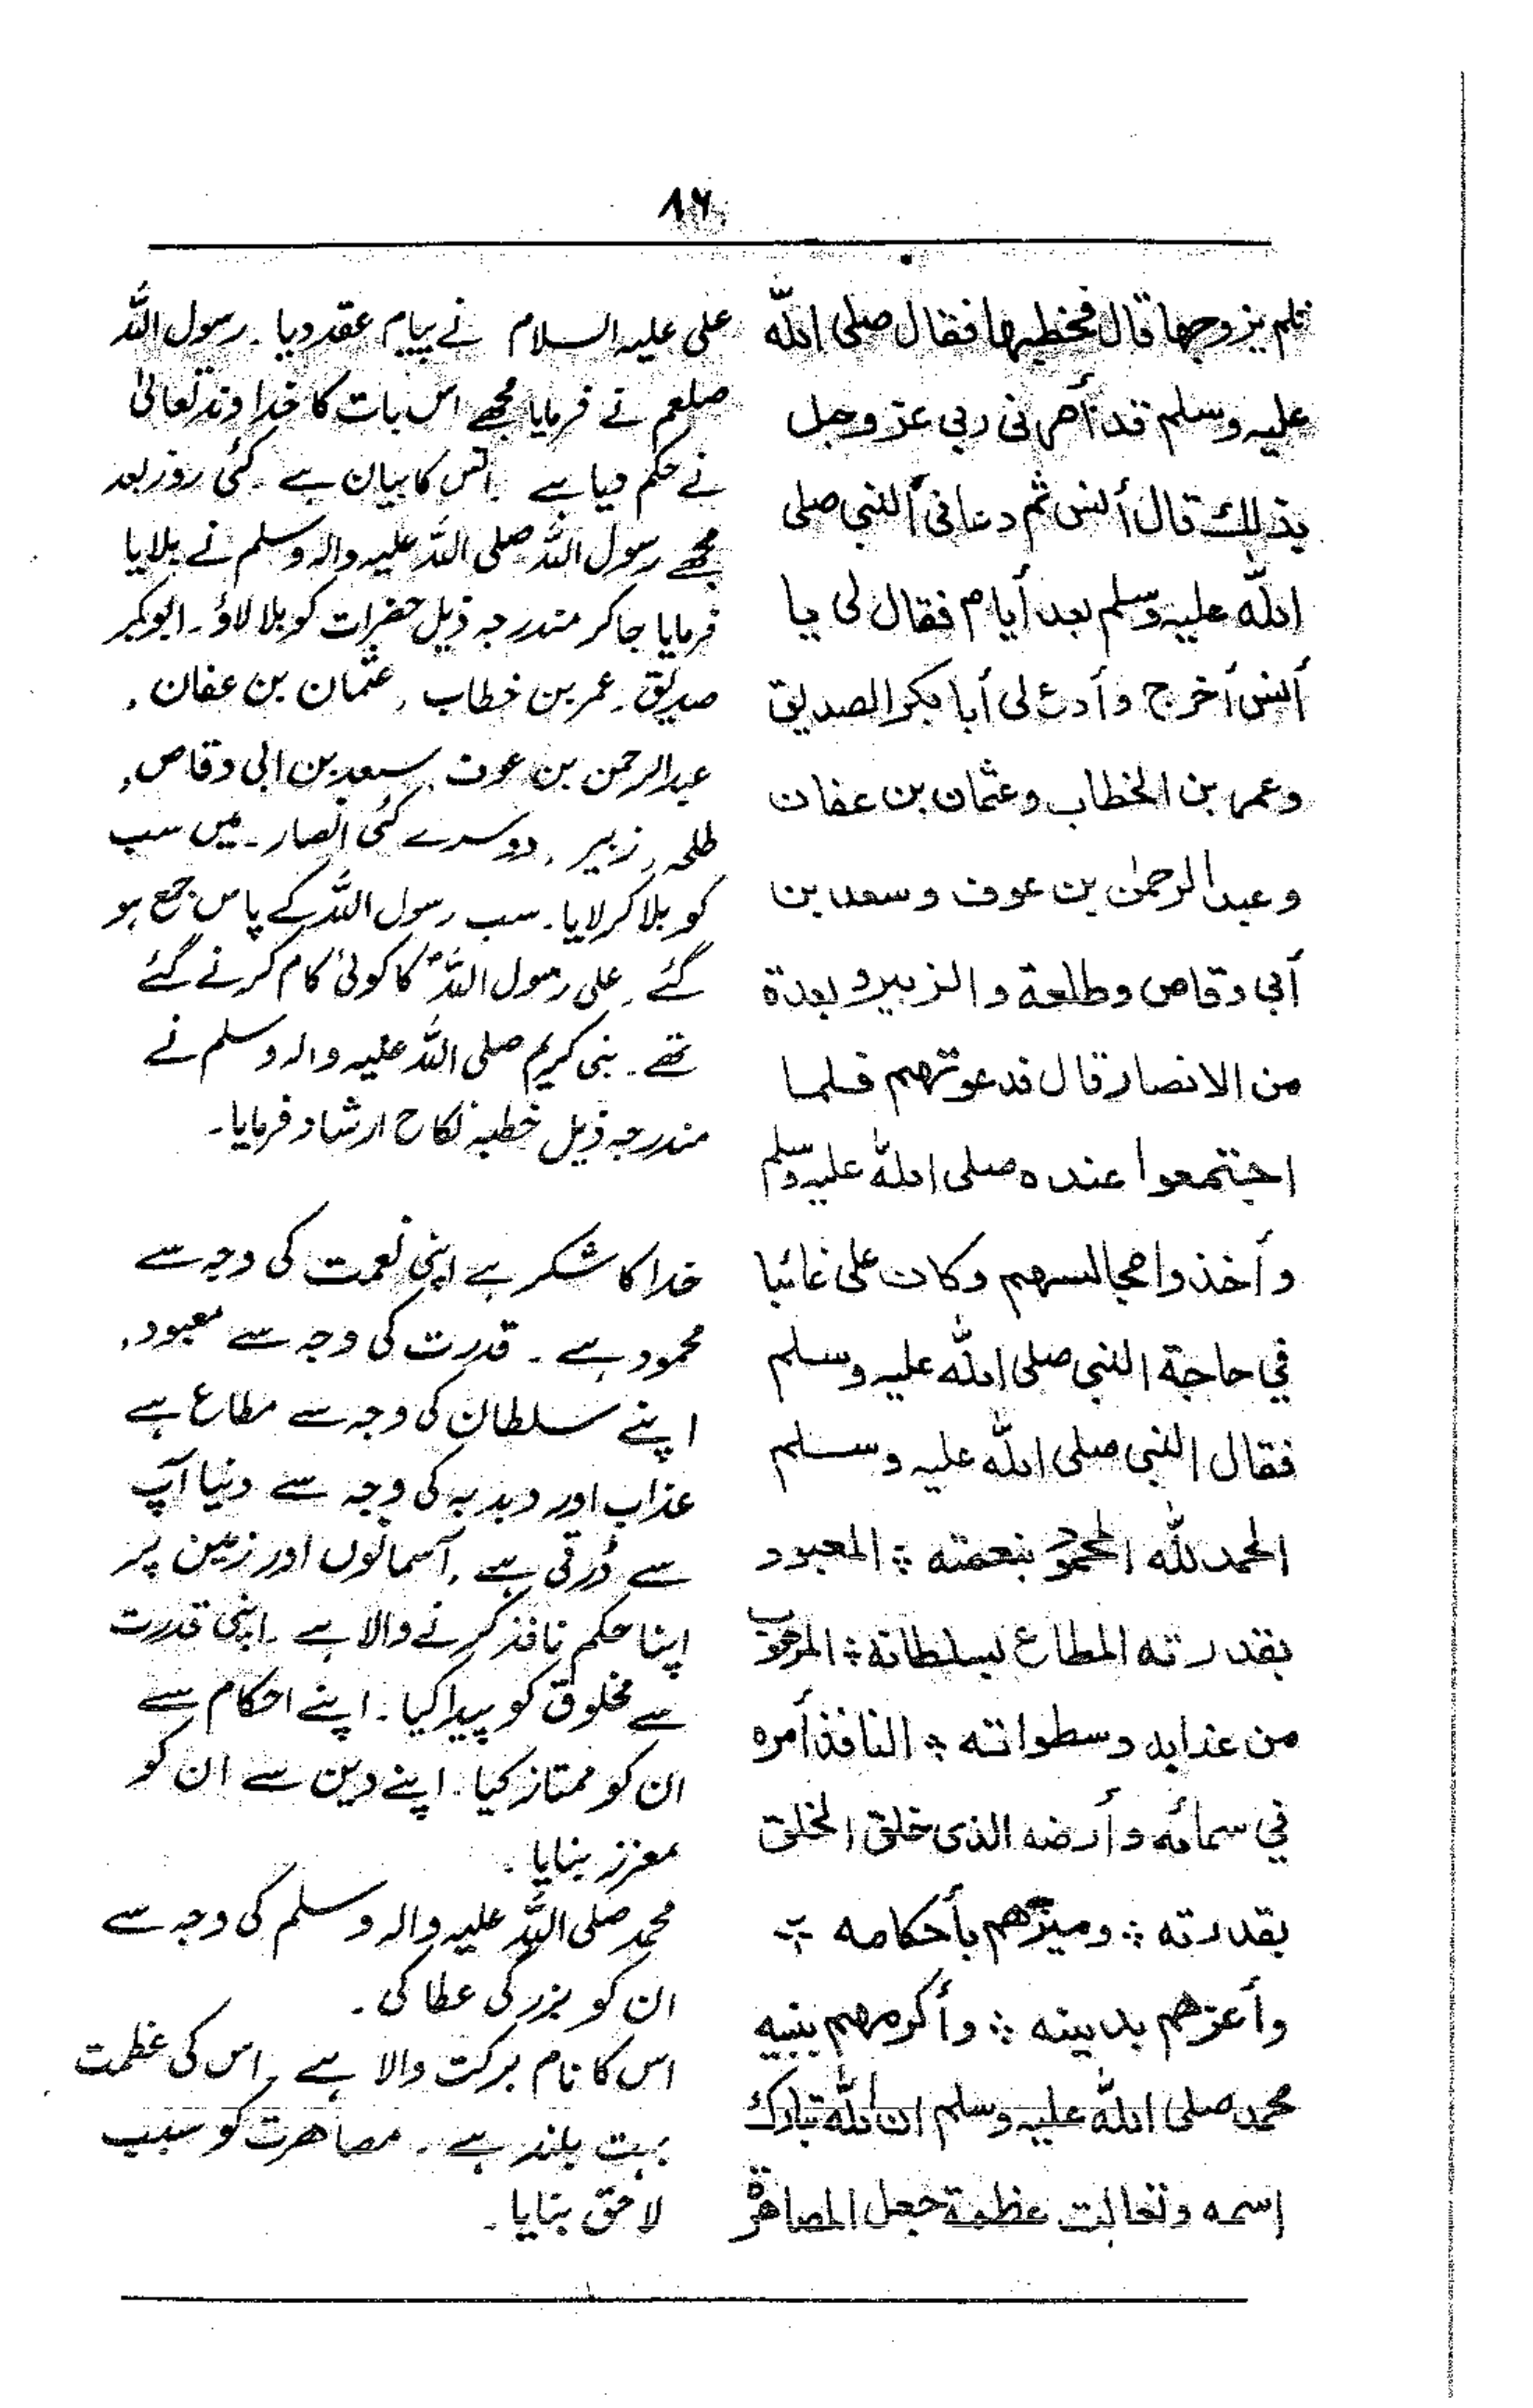 ۸۶
فلم یزوجها قال فخطبها فقال صلی الله
علیه وسلم قد أمرنی ربی عز وجل
بذلك قال أنس ثم دعانی ألنبی صلی
الله علیه وسلم بعد أیام فقال لی یا
أنس أخرج وأدع لی أبا بکر الصدیق
وعمر بن الخطاب وعثمان بن عفان
وعبد الرحمٰن بن عوف وسعد بن
أبی وقاص وطلحة والزبیر و بعدة
من الانصار قال فدعوتهم فلما
اجتمعوا عنده صلی الله علیه وسلم
وأخذوا مجالسهم وکان علی غائبا
في حاجة النبی صلی الله علیه وسلم
فقال النبی صلی الله علیه وسلم
الحمد لله المحمود بنعمته ؞ المعبود
بقدرته المطاع بسلطانه ؞ المرهوب
من عذابه وسطواته ؞ النافذ أمره
في سمائه وأرضه الذی خلق الخلق
بقدرته ؞ ومیزهم بأحکامه ؞
وأعزهم بدینه ؞ وأکرمهم بنبیه
محمد صلی الله علیه وسلم ان الله تبارك
اسمه وتعالت عظمة جعل المصاهرة
علی علیہ السلام نے پیام عقد دیا۔ رسول اللہ
صلعم نے فرمایا مجھے اس بات کا خداوند تعالیٰ
نے حکم دیا ہے۔ انس کا بیان ہے۔ کئی روز بعد
مجھے رسول اللہ صلی اللہ علیہ والہ وسلم نے بلایا
فرمایا جا کر مندرجہ ذیل حضرات کو بلا لاؤ۔ ابوبکر
صدیق۔ عمر بن خطاب، عثمان بن عفان،
عبدالرحمن بن عوف، سعد بن ابی وقاص،
طلحہ، زبیر، دوسرے کئی انصار۔ میں سب
کو بلا کر لایا۔ سب رسول اللہ کے پاس جمع ہو
گئے۔ علی رسول اللہؐ کا کوئی کام کرنے گئے
تھے۔ نبی کریم صلی اللہ علیہ والہ وسلم نے
مندرجہ ذیل خطبہ نکاح ارشاد فرمایا۔
خدا کا شکر ہے اپنی نعمت کی وجہ سے
محمود ہے۔ قدرت کی وجہ سے معبود،
اپنے سلطان کی وجہ سے مطاع ہے
عذاب اور دبدبہ کی وجہ سے دنیا آپ
سے ڈرتی ہے، آسمانوں اور زمین پر
اپنا حکم نافذ کرنے والا ہے۔ اپنی قدرت
سے مخلوق کو پیدا کیا۔ اپنے احکام سے
ان کو ممتاز کیا۔ اپنے دین سے ان کو
معزز بنایا۔
محمد صلی اللہ علیہ والہ وسلم کی وجہ سے
ان کو بزرگی عطا کی۔
اس کا نام برکت والا ہے۔ اس کی عظمت
بہت بلند ہے۔ مصاہرت کو سبب
لاحق بنایا۔